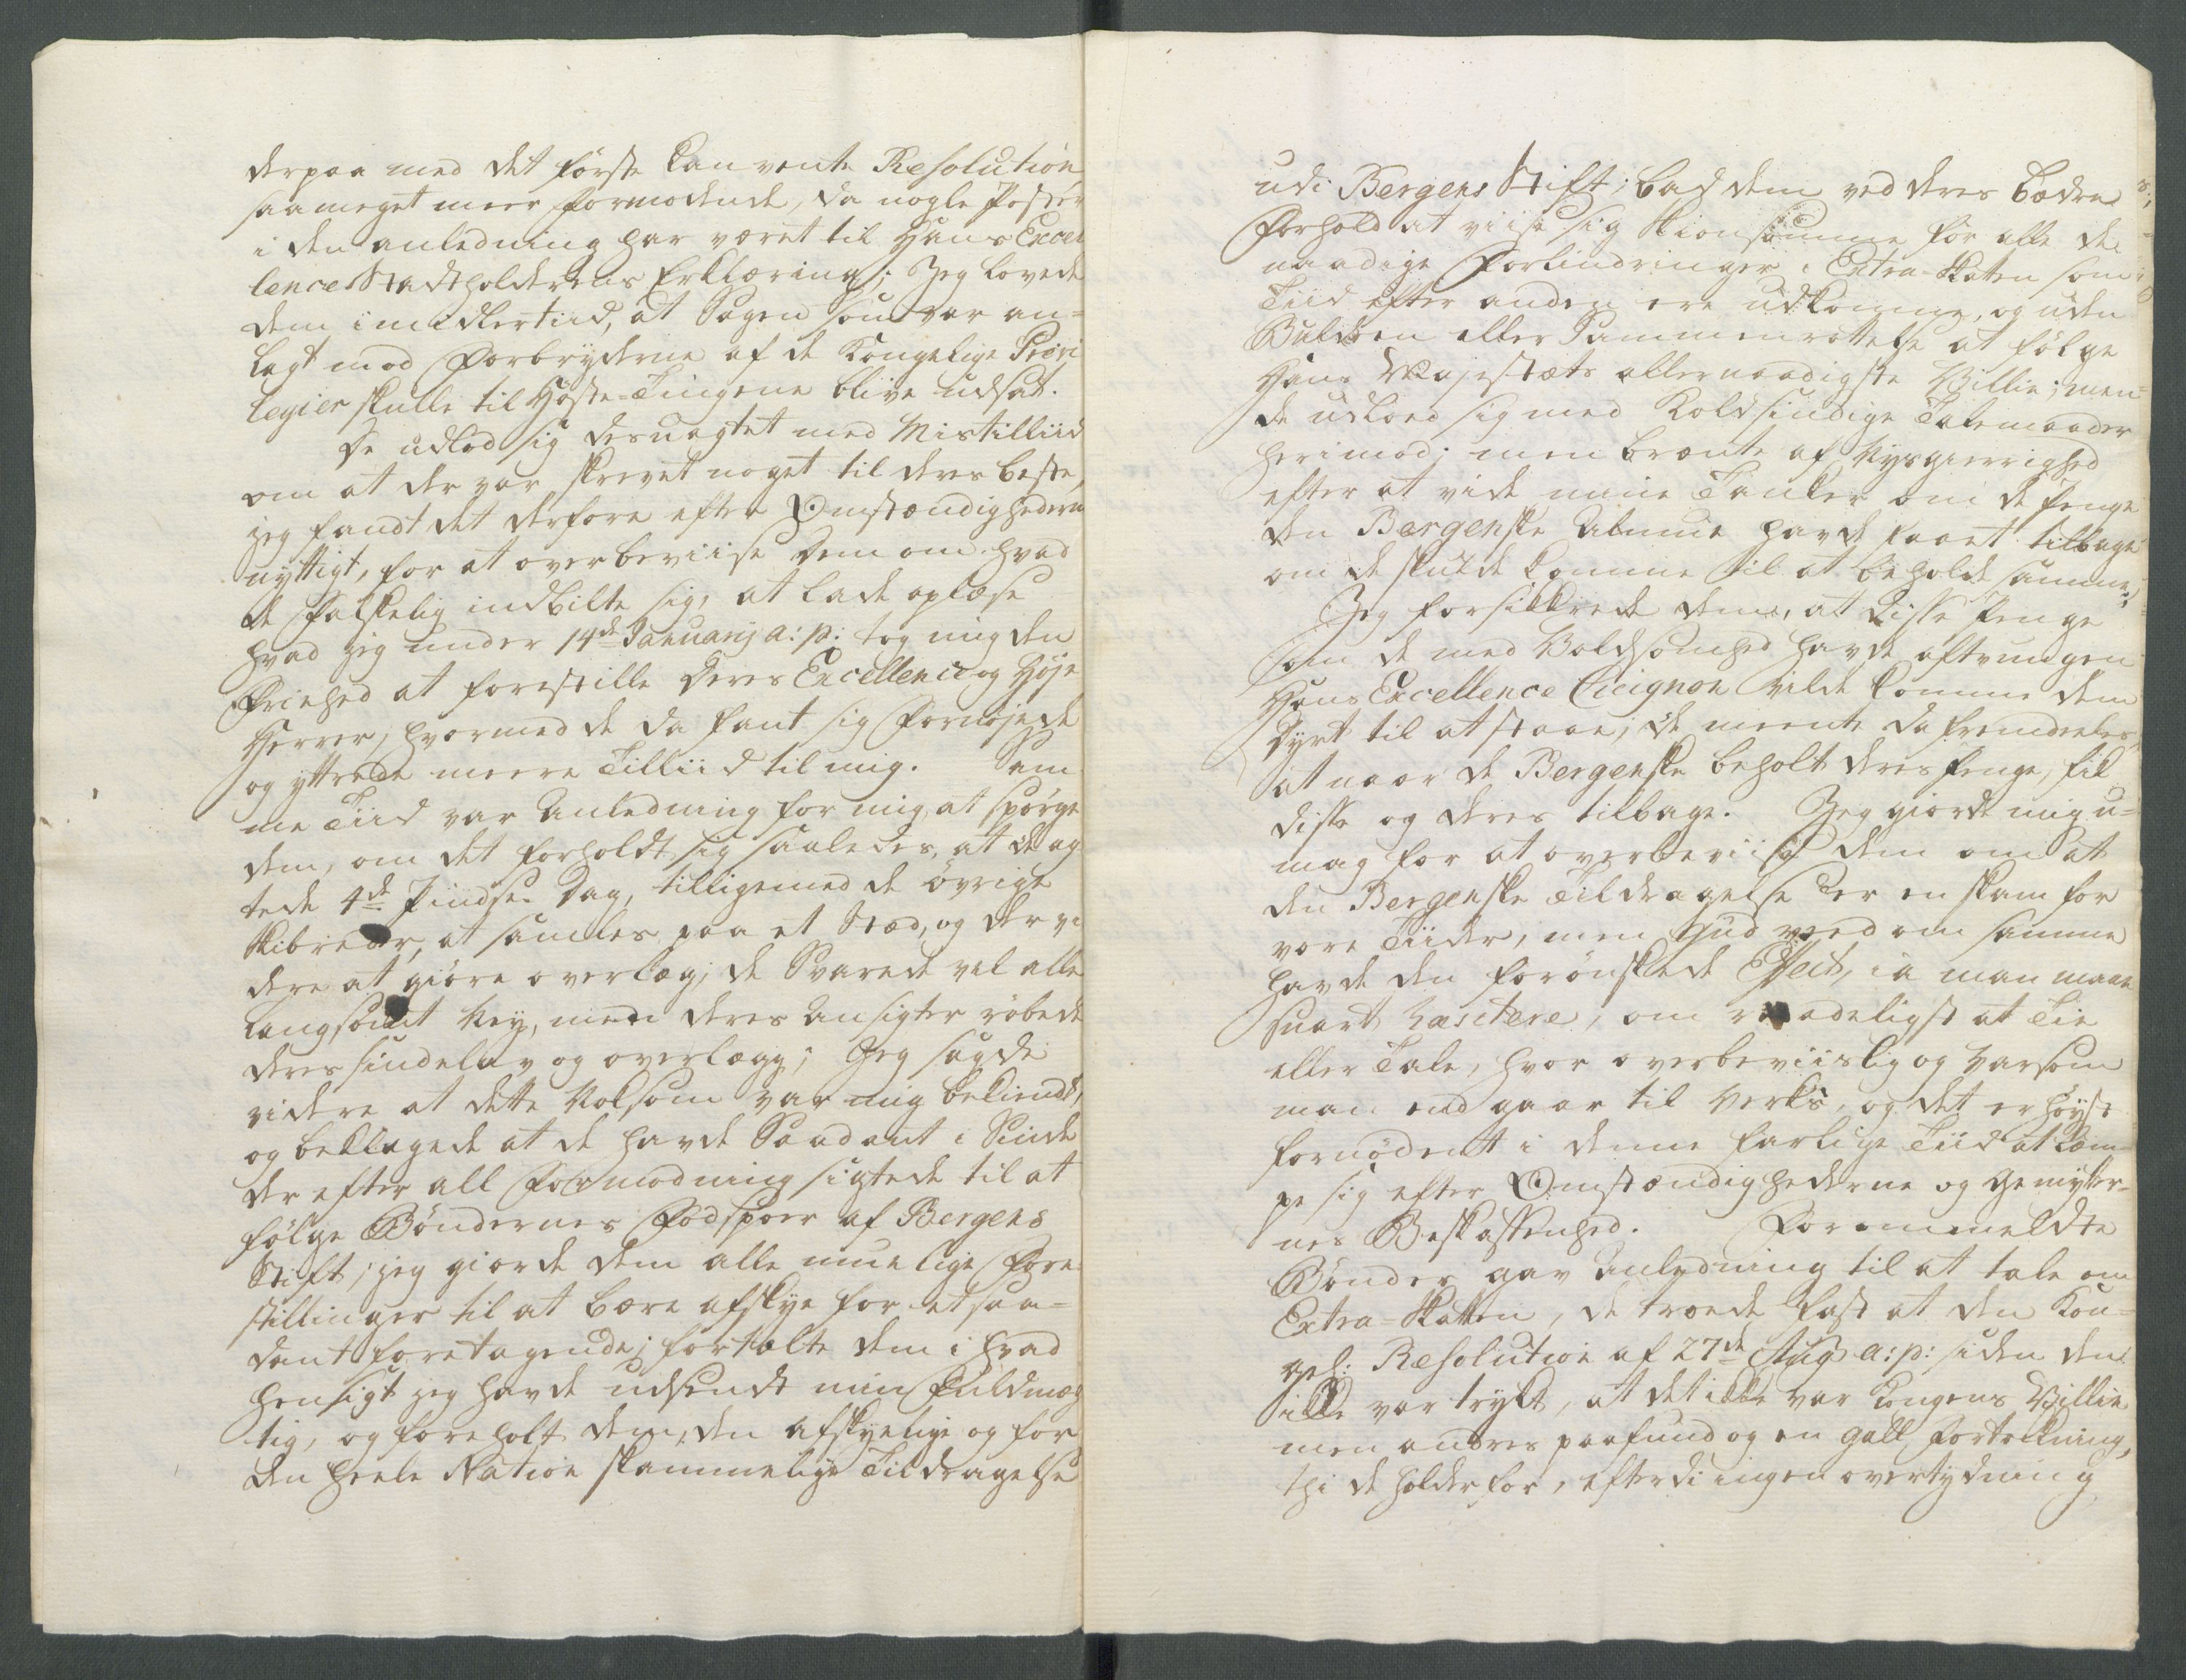 derpaa med det første kan vente Resolution
saa meget meer formodende, da nogle Poster
i den anledning har været til Hans Excel
lence Stadtholderens Erklæring; Jeg lovede
dem imidlertiid, at Sagen som var an-
lagt mod Forbryderne af de Kongelige Privi
legier skulle til Høste-Tingene blive udsat.
De udlod sig desuagtet med Mistilliid
om at der var skrevet noget til deres beste,
jeg fandt det derfore efter Omstændighederne
nyttigt, for at overbeviise dem om hvad
de falskelig indbilte sig, at lade oplæse
hvad jeg under 14de Januarij a: p: tog mig den
Friehed at forestille Deres Excellence og Høje
Herrer, hvormed de da fant sig fornøjede
og yttrede meere Tilliid til mig. Sam
me Tiid var Anledning for mig, at spørge
dem, om det forholdt sig saaledes, at de ag
tede 4de Pindse Dag, tilligemed de øvrige
Skibreder, at samles paa et Stæd, og der vi
dere at giøre overlæg; de Svarede vel alle
langsomt Ney, men deres Ansigter røbede
deres sindelav og overlægg; Jeg sagde
videre at dette Volsom var mig bekiendt,
og beklagede at de havde Saadant i Sinde
der efter all Formodning sigtede til at
følge Bøndernes Fodspoer af Bergens
Stift; jeg giorde dem alle muelige Fore
stillinger til at bære afskye for et saa-
dant foretagende; fortalte dem i hvad
hensigt jeg havde udsendt min Fuldmæg
tig, og foreholt dem, den afskyelige og for
den heele Nation skammelige Tildragelse
udi Bergens Stift; bad dem ved deres bedre
Forhold at viise sig skionsomme for alle de
naadige Forlindringer i Extra-Skatten som
Tiid efter anden ere udkomne, og uden
Bulder eller Sammenrottelse at følge
Hans Majestæts allernaadigste Villie; men
de udloed sig med Koldsindige Talemaader
herimod; men brænte af Nysgierrighed
efter at vide mine Tanker om de Penge
den Bergenske Almue havde faaet tilbage
om de skulde komme til at beholde samme;
Jeg forsikkrede dem, at disse Penge
som de med Voldsomhed havde aftvungen
Hans Excellence Cicignon vilde komme dem
dyrt til at staae; de meente da fremdeeles,
at naar de Bergenske beholt deres Penge, fik
disse og deres tilbage. Jeg giorde mig u-
mag for at overbeviise dem om at
den Bergenske Tildragelse er en skam for
vore Tiider, men Gud veed om samme
havde den forønskede Effect, ia man maae
snart hæsitere, om raadeligst at Tie
eller Tale, hvor overbeviislig og varsom
man end gaar til Verks, og det er høyst
fornødent i denne farlige Tiid at læm-
pe sig efter Omstændighederne og Gemytter-
nes Beskaffenhed. Forommeldte
Bønder gav Anledning til at tale om
Extra-Skatten, de troede fast at den Kon-
gel: Resolution af 27de Aug a: p: siden den
ikke var trykt, at det ikke var Kongens Villie
men andres paafund og en gall fortolkning,
thi de holder for, efterdi ingen overtydning